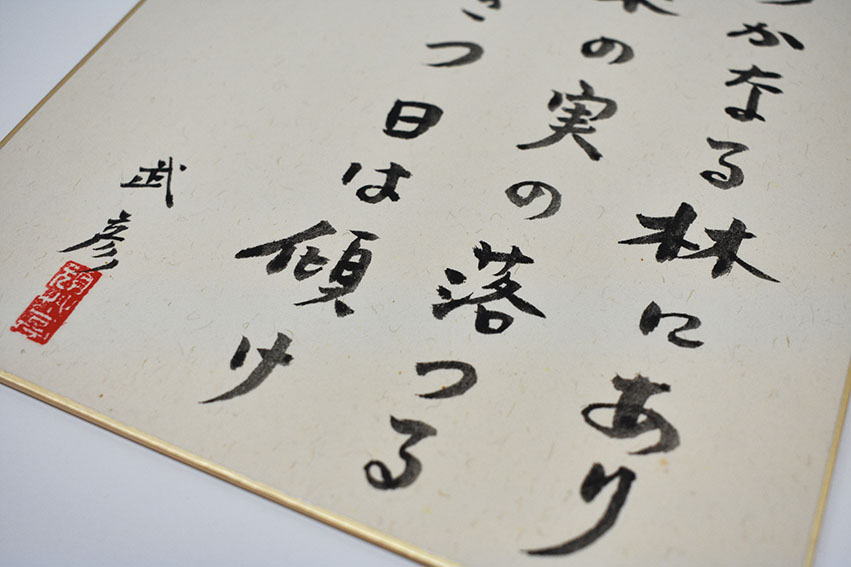 かなる林にあり
の実の落つる
つ日は傾け
武彦